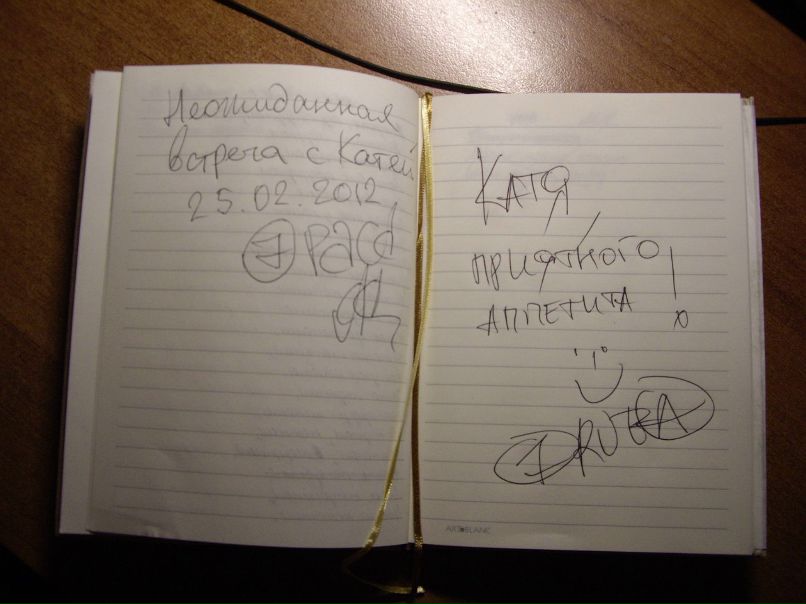 Неожиданная
встреча с Катей
25.02.2012
КАТЯ,
ПРИЯТНОГО
АППЕТИТА!
ARTBLANC